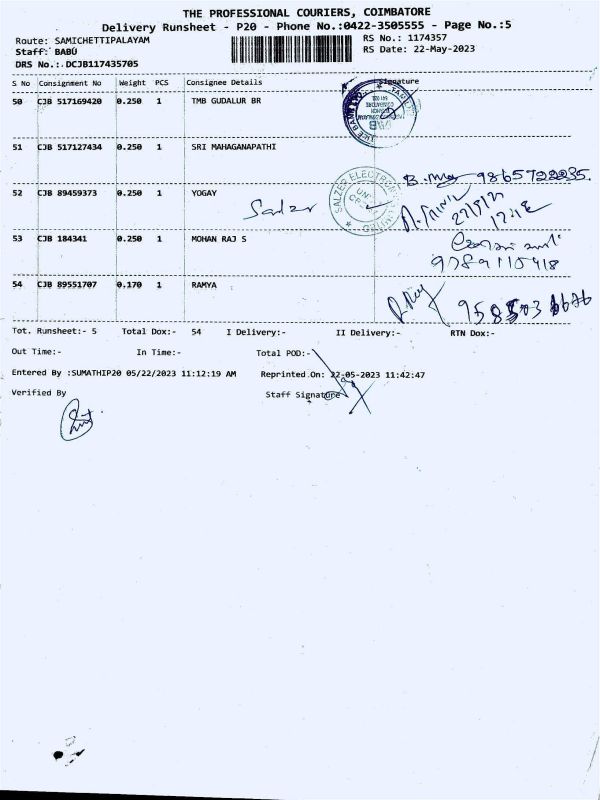 THE PROFESSIONAL COURIERS, COIMBATORE
Delivery Runsheet - P20 - Phone No.:0422-3505555 - Page No.:5
Route: SAMICHETTIPALAYAM
RS No.: 1174357
Staff: BABU
RS Date: 22-May-2023
DRS No.:.DCJB117435705
S No Consignment No Weight PCS Consignee Details Signature
50 CJB 517169420 0.250 1 TMB GUDALUR BR
51 CJB 517127434 0.250 1 SRI MAHAGANAPATHI
9865722235.
SALZER ELECTRONICS LIMITED
52 CJB 89459373 0.250 1 YOGAY
Salzer
53 CJB 184341 0.250 1 MOHAN RAJ S
9789110418
54 CJB 89551707 0.170 1 RAMYA
Tot. Runsheet:- 5 Total Dox:- 54 I Delivery:- II Delivery:- RTN Dox:-
Out Time:- In Time:- Total POD:-
Entered By :SUMATHIP20 05/22/2023 11:12:19 AM Reprinted On: 22-05-2023 11:42:47
Verified By Staff Signature